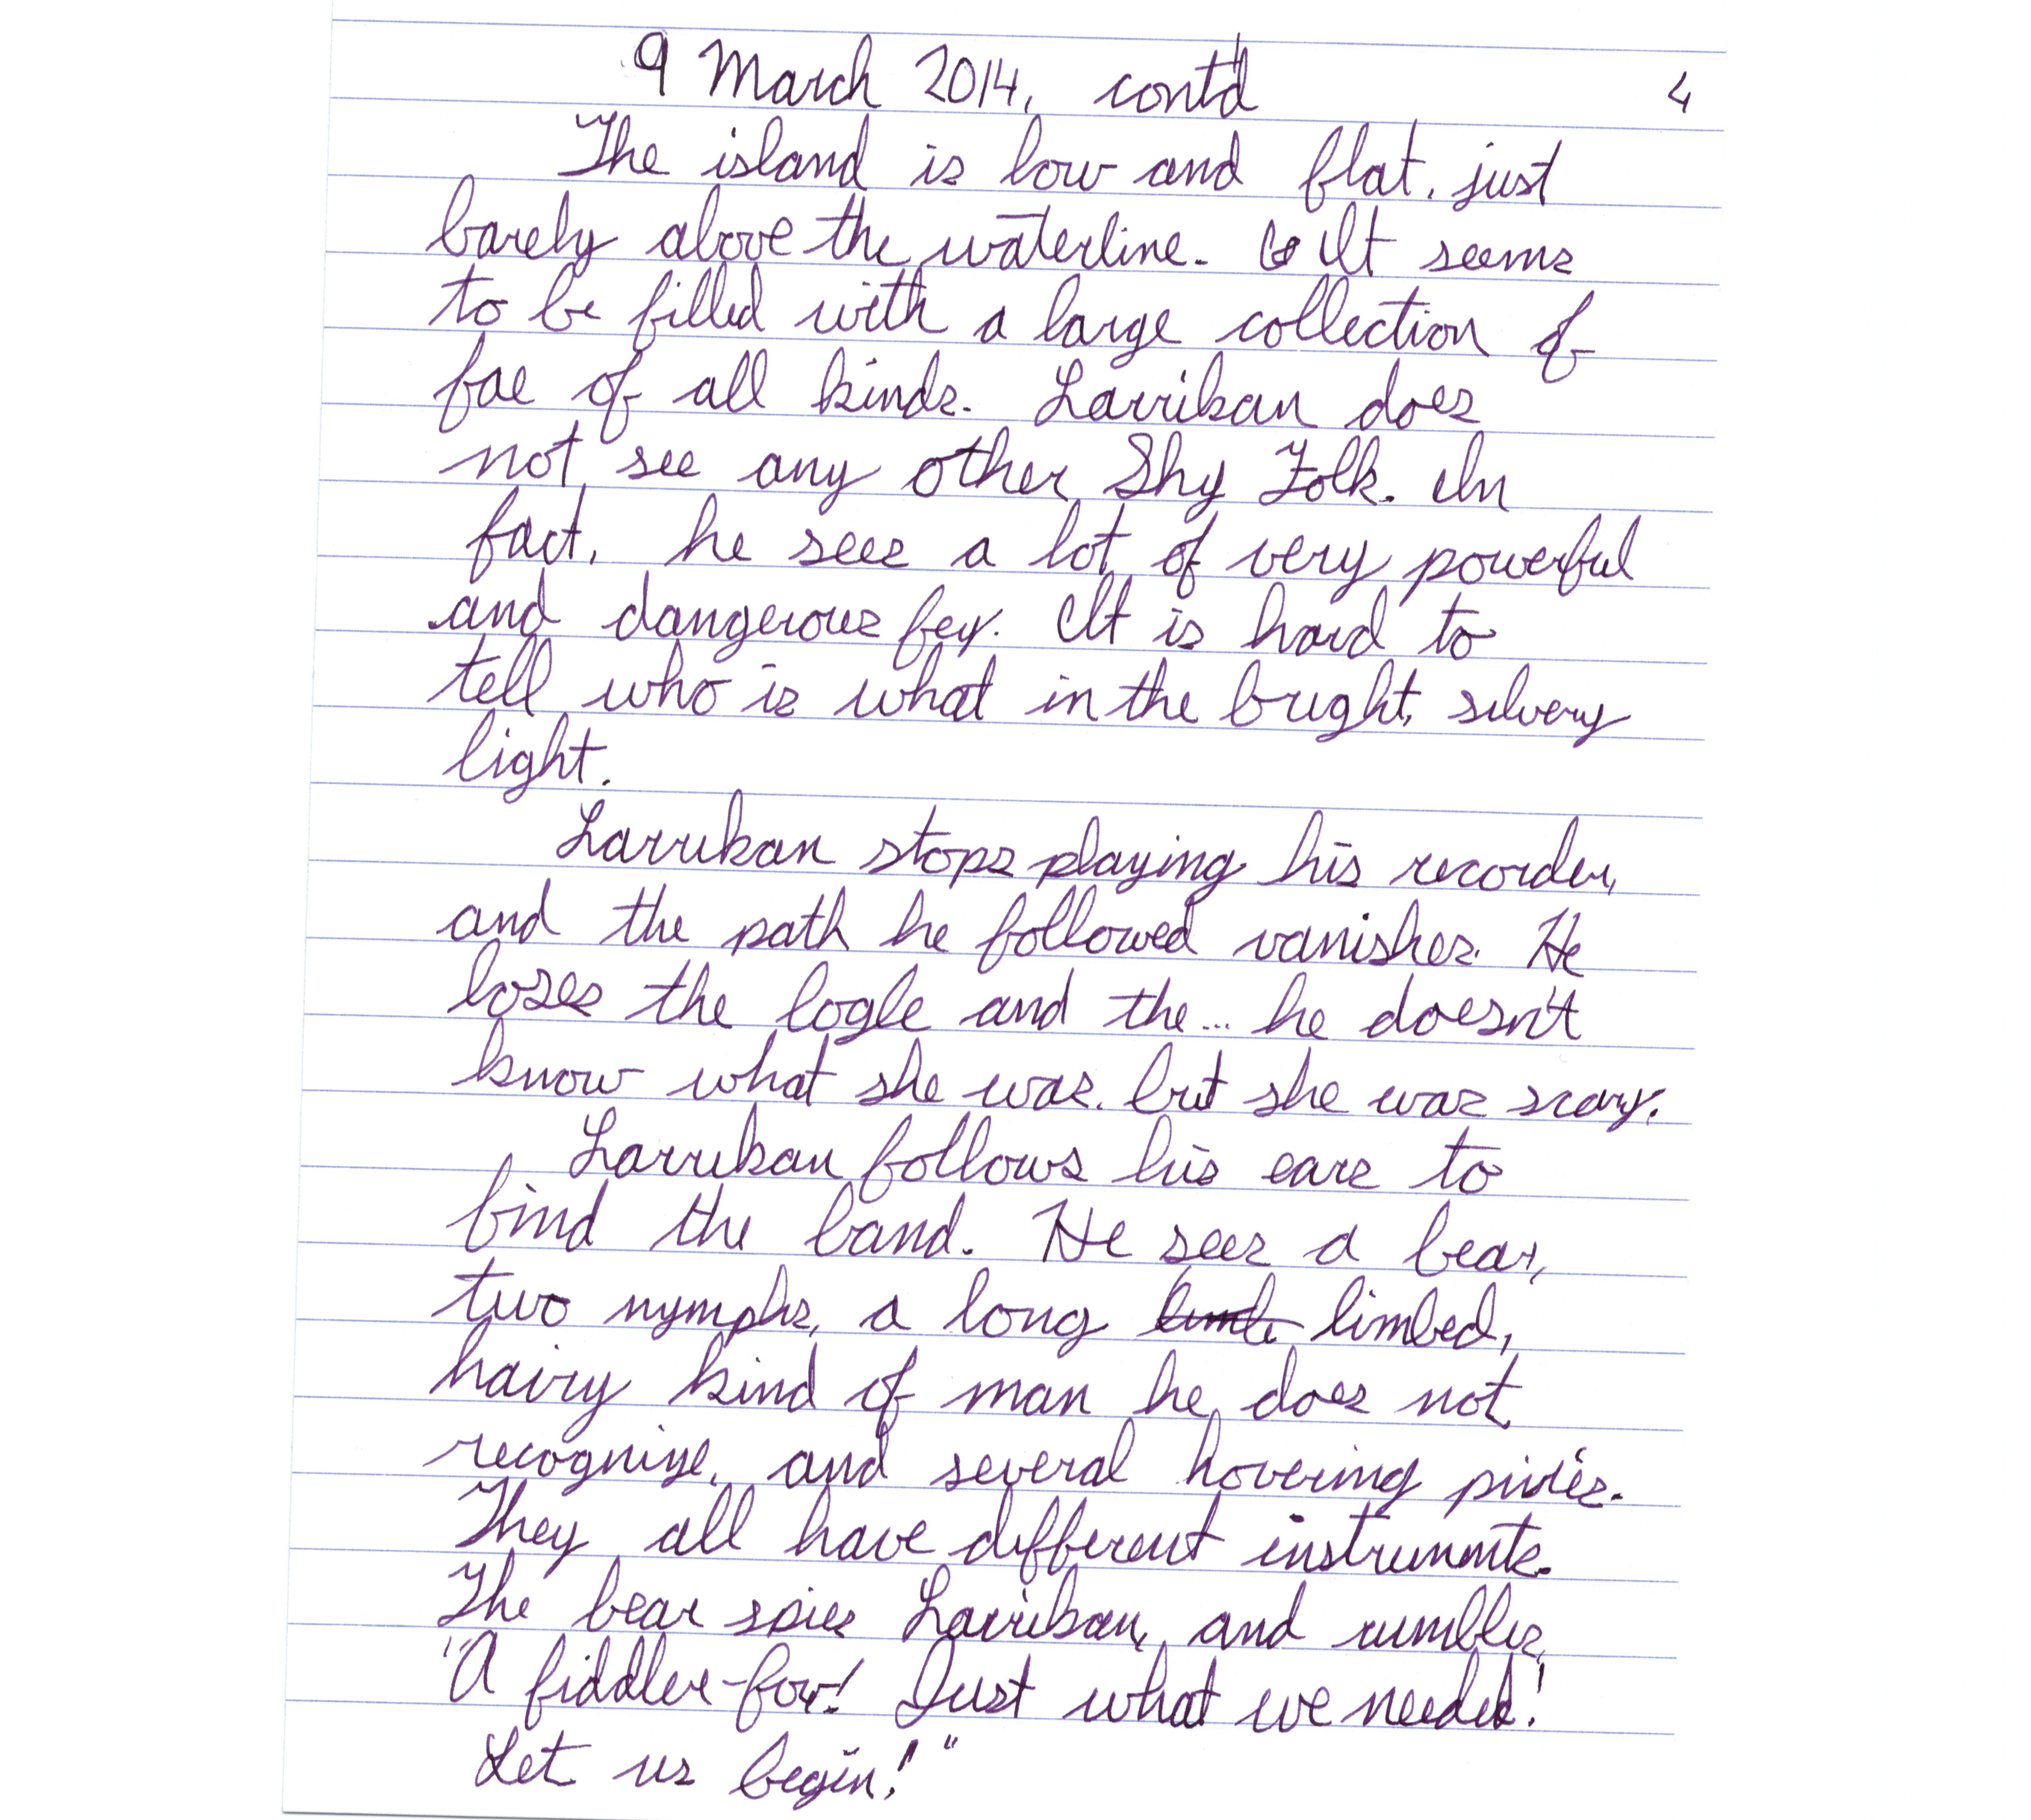 9 March 2014, cont'd 4
The island is low and flat, just
barely above the waterline. It seems
to be filled with a large collection of
fae of all kinds. Larrikan does
not see any other Shy Folk. In
fact, he sees a lot of very powerful
and dangerous fey. It is hard to
tell who is what in the bright, silvery
light.
Larrikan stops playing his recorder,
and the path he followed vanishes. He
loses the logle and the... he doesn't
know what she was, but she was scary.
Larrikan follows his ears to
find the band. He sees a bear,
two nymphs, a long limbs limbed,
hairy kind of man he does not
recognize, and several hovering pixies.
They all have different instruments.
The bear spies Larrikan, and rumbles,
"A fiddler-fox! Just what we needed!
Let us begin!"